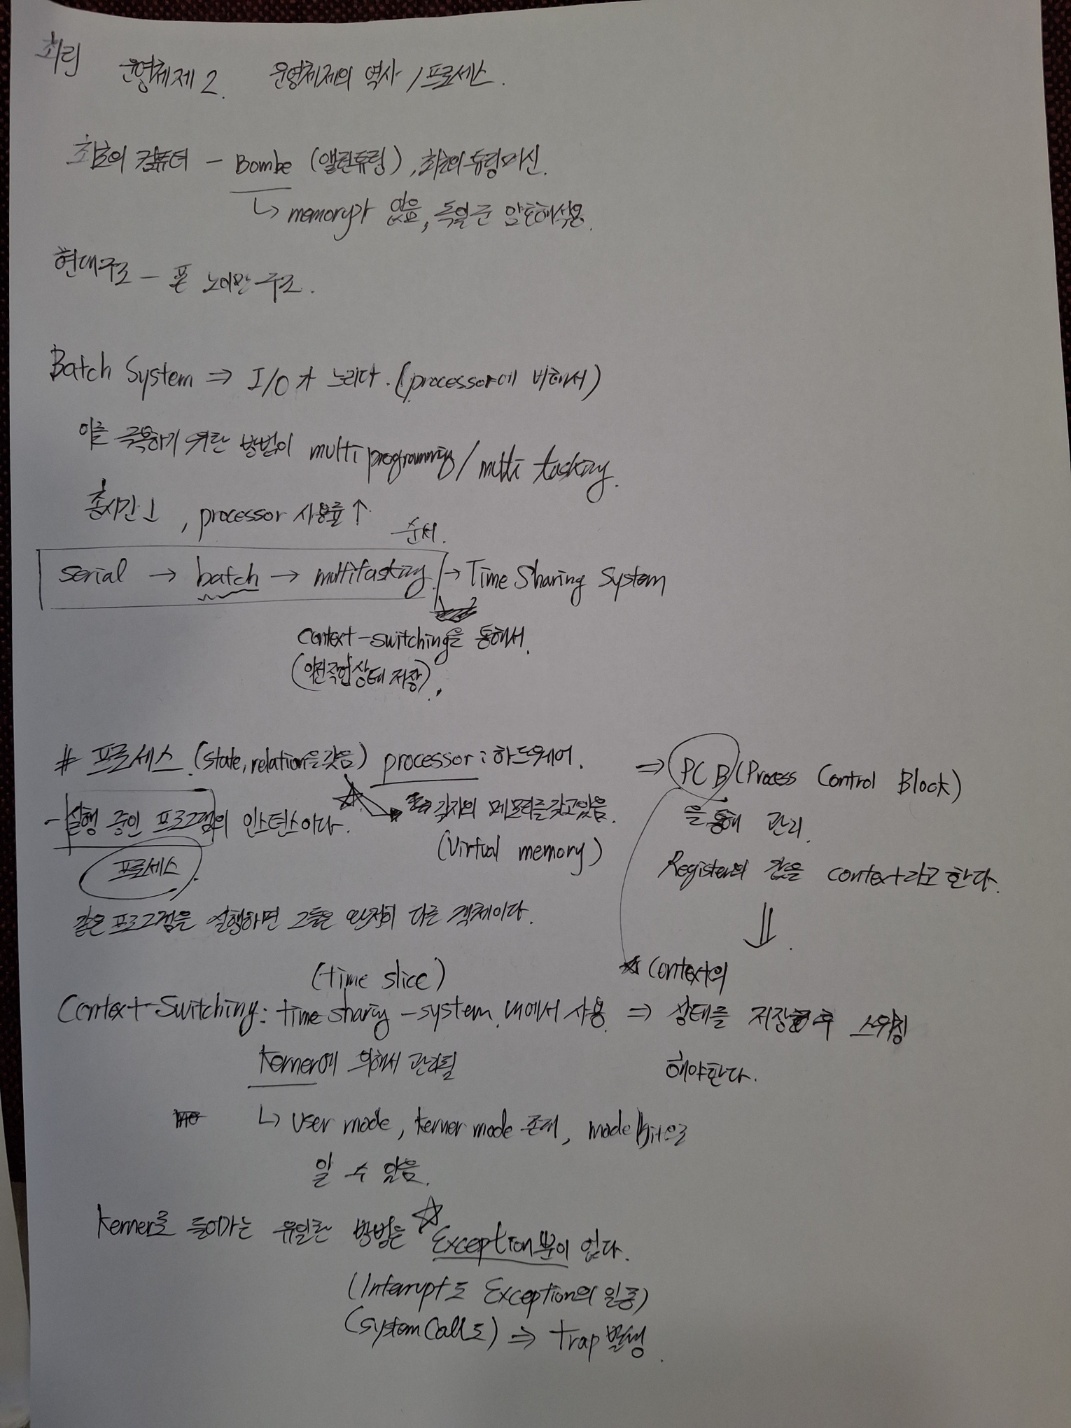 운영체제 2. 운영체제의 역사 / 프로세스.
최초의 컴퓨터 - Bombe (앨런튜링), 최초의 튜링머신.
↳ memory가 없음, 독일군 암호해석용.
현대구조 - 폰 노이만 구조.
Batch System ⇒ I/O가 느리다. (processor에 비해서)
이를 극복하기 위한 방법이 multi programming / multi tasking.
총시간↓, processor 사용률↑
순서.
serial → batch → multitasking → Time Sharing System
context-switching을 통해서.
(이전작업상태 저장).
# 프로세스. (state, relation을 갖음) processor : 하드웨어.
- 실행 중인 프로그램의 인스턴스이다. 각자의 메모리를 갖고있음.
(Virtual memory)
프로세스
같은 프로그램을 실행하면 그들은 완전히 다른 객체이다.
⇒ PCB (Process Control Block)
을 통해 관리.
Register의 값을 context라고 한다.
⇓
(time slice)
Context-Switching : time sharing-system 내에서 사용
kerner에 의해서 관리됨
⇒ ☆ Context의
상태를 저장한 후 스위칭
해야한다.
↳ user mode, kerner mode 존재, mode bit으로
알 수 있음.
kerner로 들어가는 유일한 방법은 ☆ Exception뿐이 없다.
(Interrupt도 Exception의 일종)
(System Call도) ⇒ trap 발생.